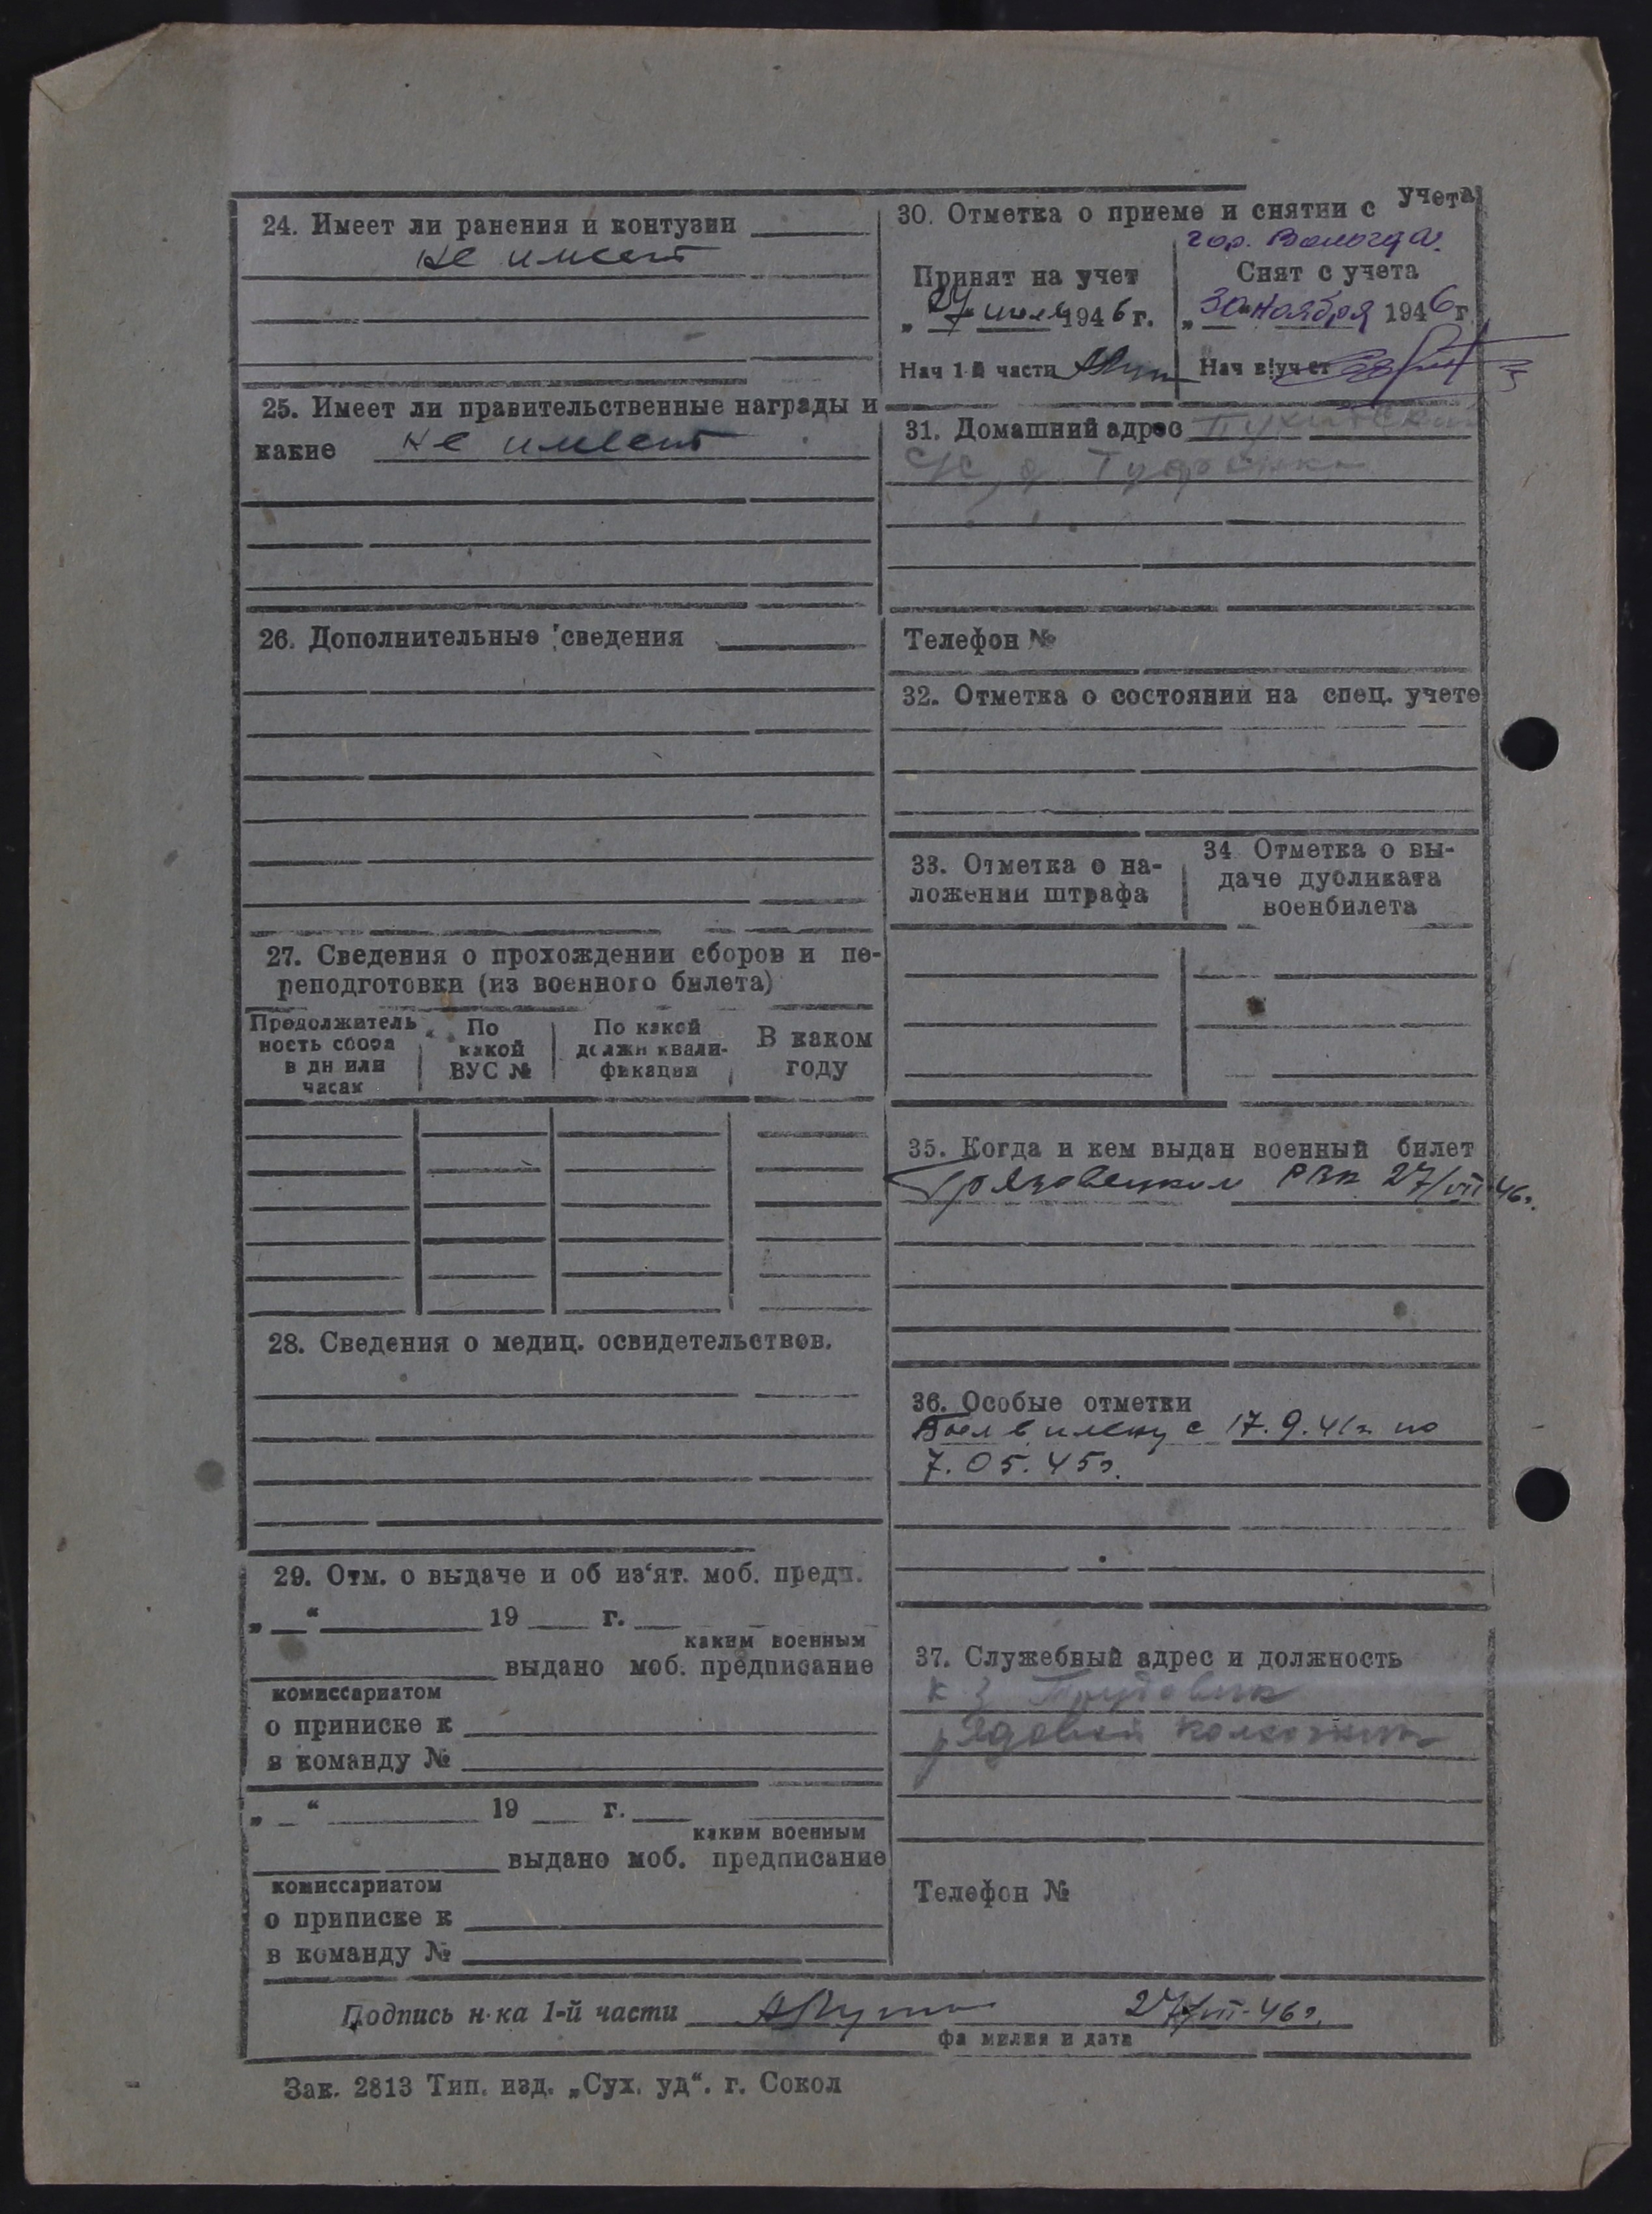 24. Имеет ли ранения и контузии
не имеет
25. Имеет ли правительственные награды и
какие не имеет
26. Дополнительные сведения
27. Сведения о прохождении сборов и пе-
реподготовки (из военного билета)
Продолжитель
ность сбора
в дн или
часах
По
какой
ВУС №
По какой
должн квали-
фикации
В каком
году
28. Сведения о медиц. освидетельствов.
29. Отм. о выдаче и об из‘ят. моб. предп.
„ “ 19 г.
каким военным
выдано моб. предписание
комиссариатом
о приписке к
в команду №
„ “ 19 г.
каким военным
выдано моб. предписание
комиссариатом
о приписке к
в команду №
30. Отметка о приеме и снятии с учета
гор. Вологда.
Принят на учет
„27 июля 1946 г.
Нач 1-й части
Снят с учета
„30“ ноября 1946 г
Нач в|учет
31. Домашний адрес
с/с, д.
Телефон №
32. Отметка о состоянии на спец. учете
33. Отметка о на-
ложении штрафа
34 Отметка о вы-
даче дубликата
военбилета
35. Когда и кем выдан военный билет
Грязовецким РВК 27/VII 46г.
36. Особые отметки
Был в плену с 17.9.41г. по
7.05.45г.
37. Служебный адрес и должность
к-з Трудовик
рядовой колхозник
Телефон №
Подпись н-ка 1-й части 27/VII-46г.
фамилия и дата
Зак. 2813 Тип. изд. „Сух. уд“. г. Сокол